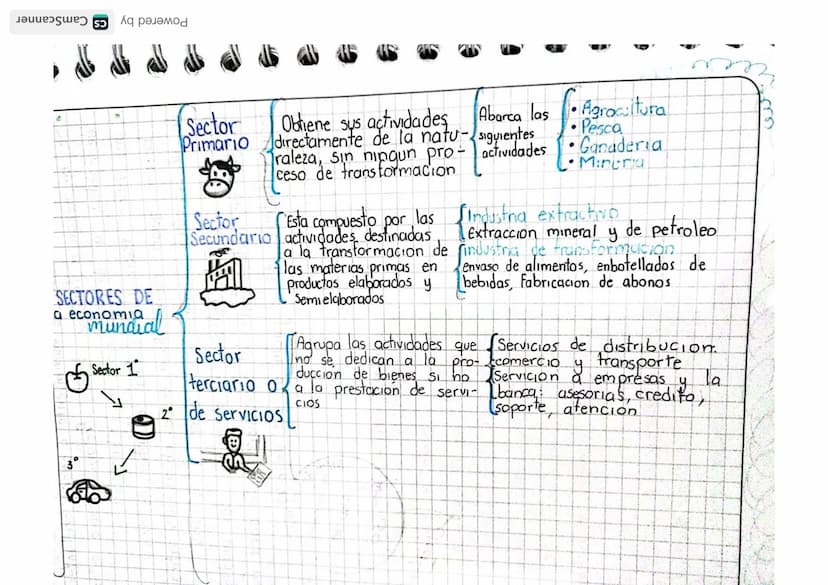 Powered by CamScanner
SECTORES DE
a economia
mundial
Sector 1°
2°
3°
Sector
Primario
Obtiene sus actividades
directamente de la natu-
raleza, sin ningun pro-
ceso de transformacion
Abarca las
siguientes
actividades
• Agrocultura
• Pesca
• Ganaderia
• Mineria
Sector
Secundario
Esta compuesto por las
actividades destinadas
a la transformacion de
las materias primas en
productos elaborados y
Semielaborados
Industria extractivo
Extraccion mineral y de petroleo
industria de transformacion
envaso de alimentos, enbotellados de
bebidas, Fabricacion de abonos
Sector
terciario o
de servicios
Agrupa las actividades que
no se dedican a la pro-
duccion de bienes si no
a la prestacion de servi-
cios
Servicios de distribucion.
comercio y transporte
Servicion a empresas y la
banca: asesorias, credito,
soporte, atencion